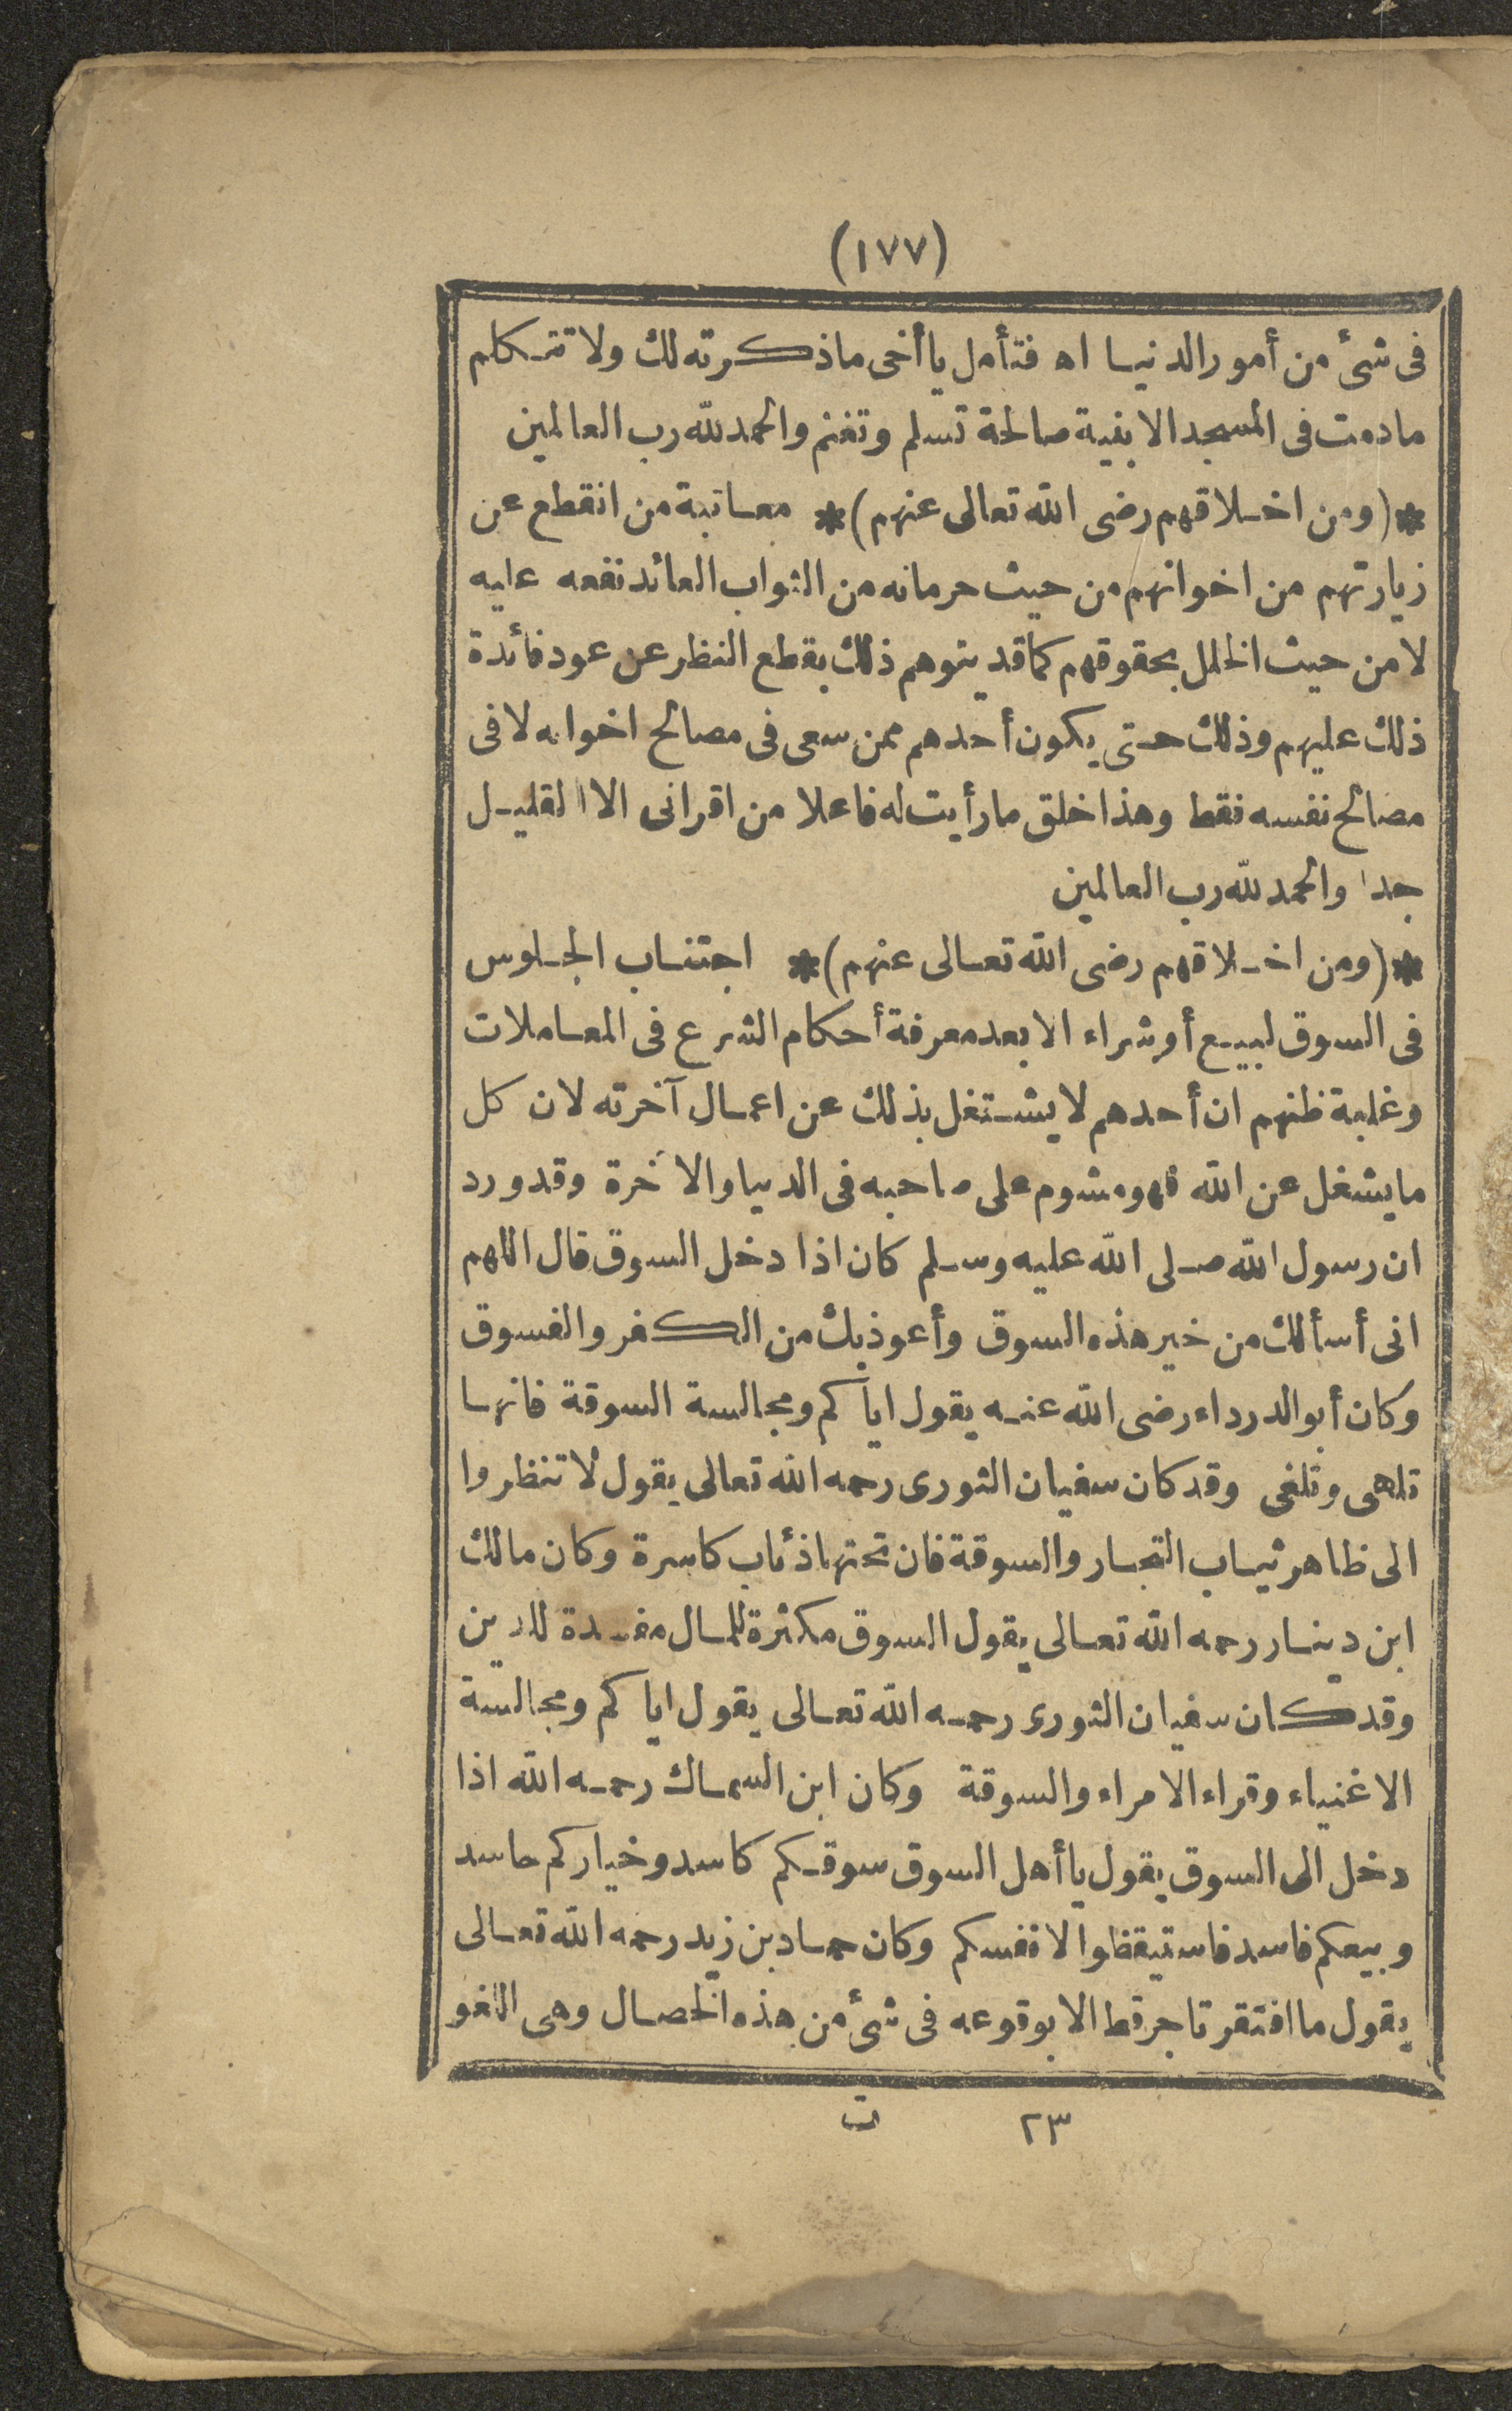 (١٧٧)
فى شئ من أمور الدنيا اه فتأمل يا أخى ماذكرته لك ولا تتكلم
مادمت فى المسجد الا بنية صالحة تسلم وتغنم والحمد لله رب العالمين
*(ومن اخلاقهم رضى الله تعالى عنهم)* معاتبة من انقطع عن
زيارتهم من اخوانهم من حيث حرمانه من الثواب العائد نفعه عليه
لا من حيث الخلل بحقوقهم كما قد يتوهم ذلك بقطع النظر عن عود فائدة
ذلك عليهم وذلك حتى يكون أحدهم ممن سعى فى مصالح اخوانه لا فى
مصالح نفسه فقط وهذا خلق ما رأيت له فاعلا من اقرانى الا القليل
جدا والحمد لله رب العالمين
*(ومن اخلاقهم رضى الله تعالى عنهم)* اجتناب الجلوس
فى السوق لبيع أو شراء الا بعد معرفة أحكام الشرع فى المعاملات
وغلبة ظنهم ان أحدهم لا يشتغل بذلك عن اعمال آخرته لان كل
ما يشغل عن الله فهو مشوم على صاحبه فى الدنيا والا خرة وقد ورد
ان رسول الله صلى الله عليه وسلم كان اذا دخل السوق قال اللهم
انى أسألك من خير هذه السوق وأعوذ بك من الكفر والفسوق
وكان أبو الدرداء رضى الله عنه يقول اياكم ومجالسة السوقة فانها
تلهى وتلغى وقد كان سفيان الثورى رحمه الله تعالى يقول لا تنظروا
الى ظاهر ثياب التجار والسوقة فان تحتها ذئاب كاسرة وكان مالك
ابن دينار رحمه الله تعالى يقول السوق مكثرة للمال مفسدة للدين
وقد كان سفيان الثورى رحمه الله تعالى يقول اياكم ومجالسة
الاغنياء وقراء الامراء والسوقة وكان ابن السماك رحمه الله اذا
دخل الى السوق يقول يا أهل السوق سوقكم كاسد وخياركم حاسد
وبيعكم فاسد فاستيقظوا لانفسكم وكان حماد بن زيد رحمه الله تعالى
يقول ما افتقر تاجر قط الا بوقوعه فى شئ من هذه الخصال وهى اللغو
٢٣ ت